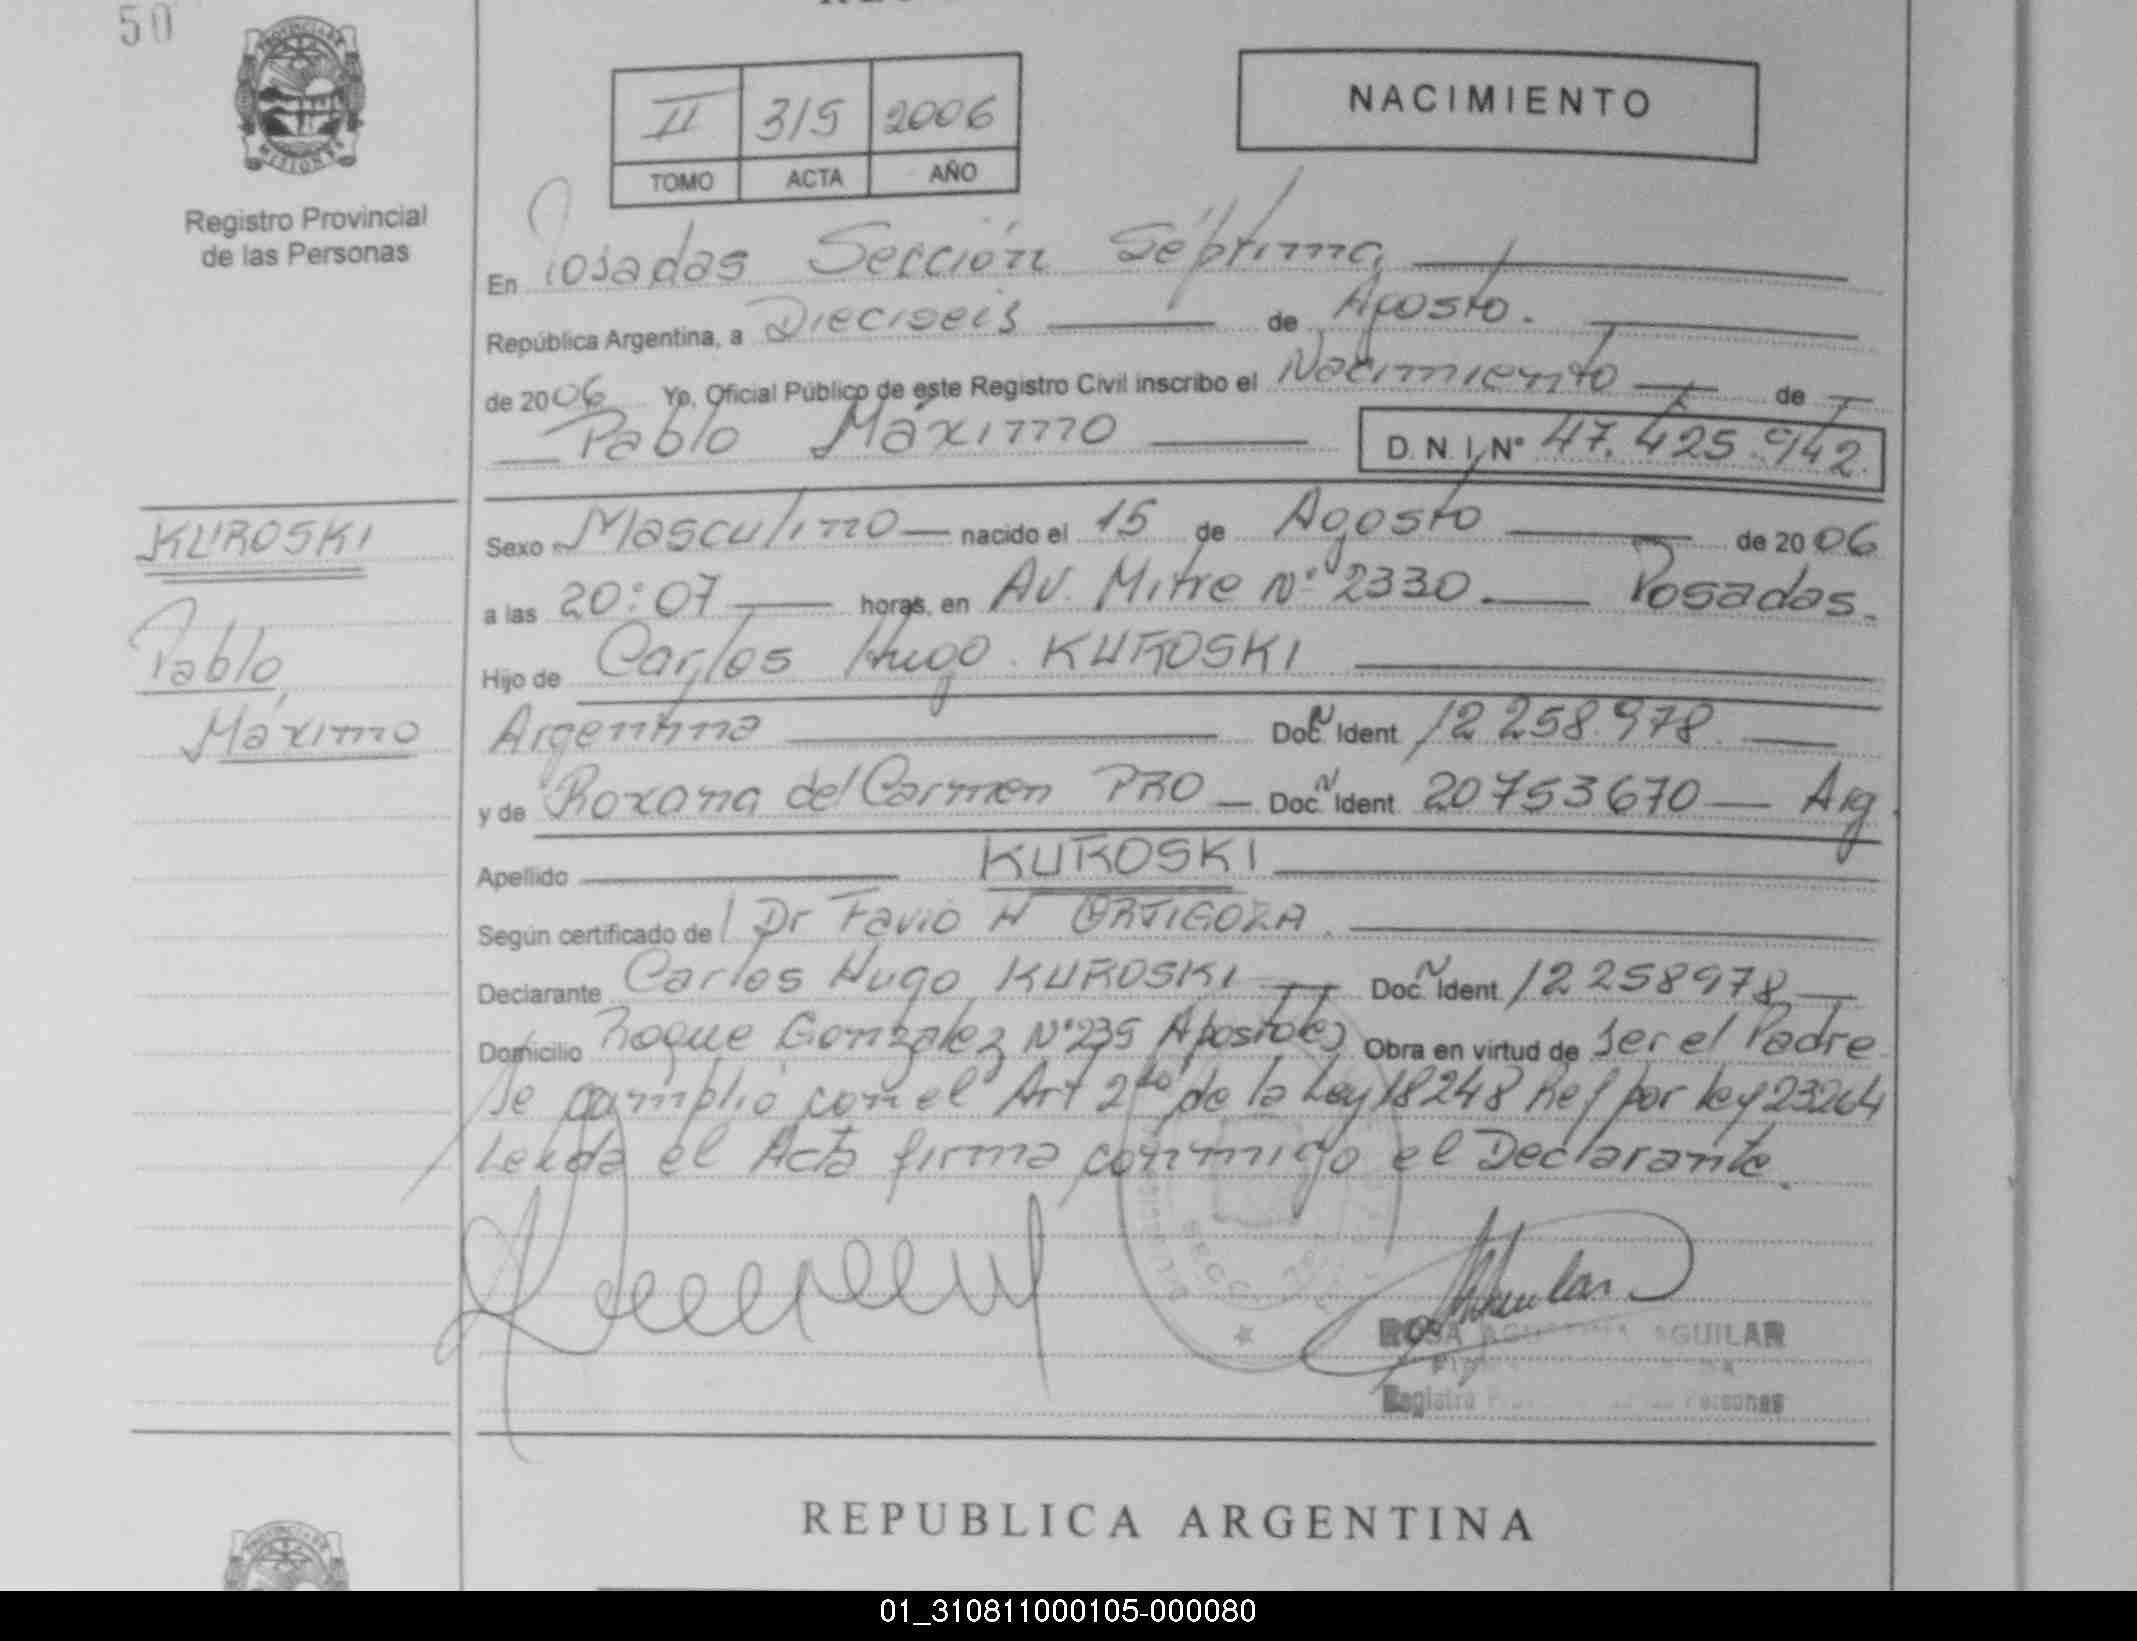 50
PROVINCIA DE
MISIONES
Registro Provincial
de las Personas
II 315 2006
TOMO ACTA AÑO
NACIMIENTO
En Posadas Sección Séptima
República Argentina, a Dieciseis de Agosto.
de 2006 Yo, Oficial Público de este Registro Civil inscribo el Nacimiento de
Pablo Máximo D. N. I. N° 47.425.942
KUROSKI
Pablo
Máximo
Sexo Masculino nacido el 15 de Agosto de 2006
a las 20:07 horas, en Av. Mitre N° 2330. Posadas.
Hijo de Carlos Hugo KUROSKI
Argentina Doc. Ident 12 258.978
y de Roxana del Carmen PRO Doc. Ident 20753670 Arg
Apellido KUROSKI
Según certificado de Dr Favio H ORTIGOZA
Declarante Carlos Hugo KUROSKI Doc. Ident 12 258978
Domicilio Roque Gonzalez N°235 Apostoles Obra en virtud de Ser el Padre
Se cumplió con el Art 2do de la Ley 18248 Ref por ley 23264
Leida el Acta firma conmigo el Declarante.
ROSA AGUILAR
Registro Personas
REPUBLICA ARGENTINA
01_310811000105-000080